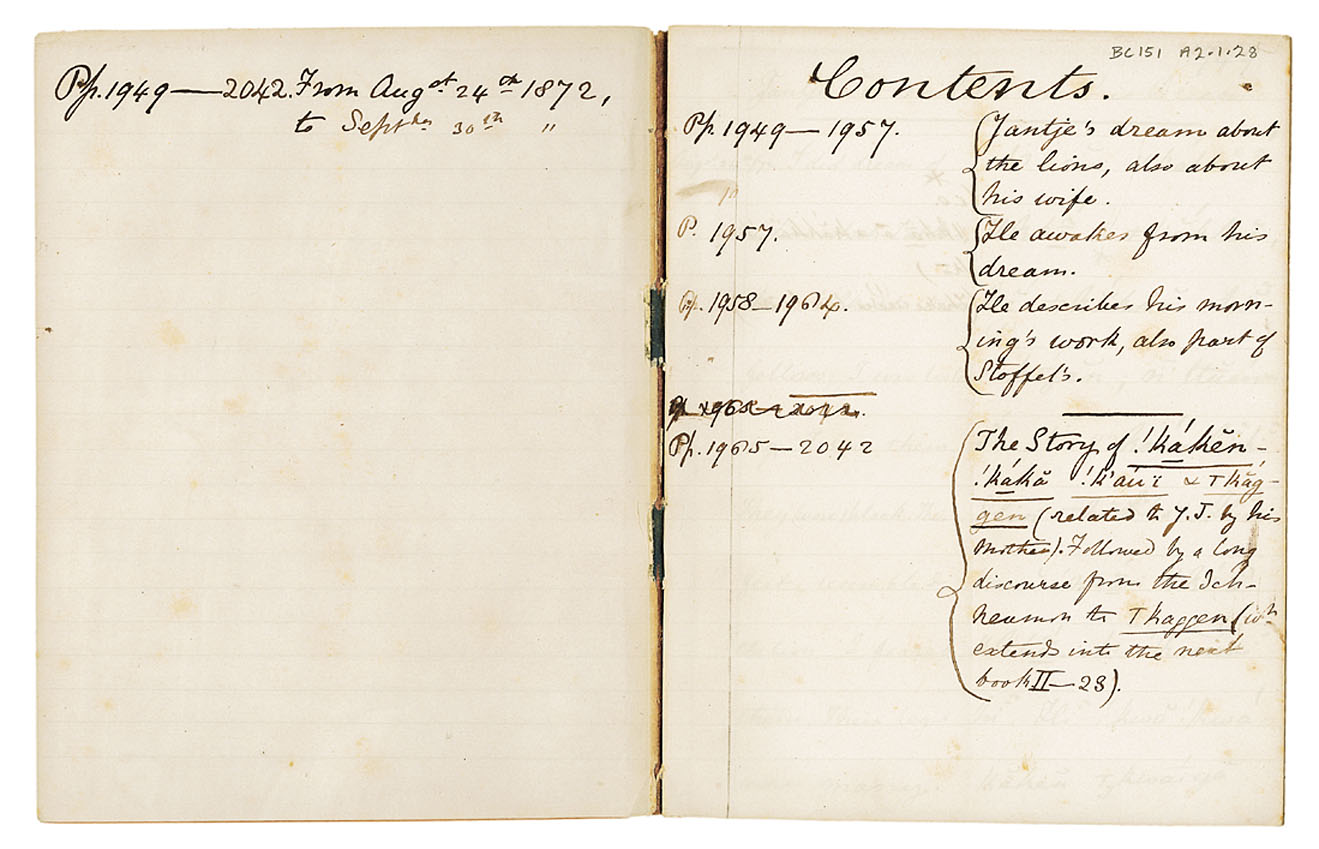 Pp. 1949—2042. From Augst. 24th 1872,
to Septber. 30th "
BC151 A2.1.28
Contents.
Pp. 1949—1957. Jantje's dream about
the lions, also about
his wife.
P. 1957. He awakes from his
dream.
Pp. 1958—1964. He describes his morn-
ing's work, also part of
Stoffel's.
Pp. 1965—2042 The Story of !kákĕn-
!kákă !k'au'ï & Tkăg-
gen (related to J.T. by his
mother). Followed by a long
discourse from the Ich-
neumon to Tkaggen (wh
extends into the next
book II—23).